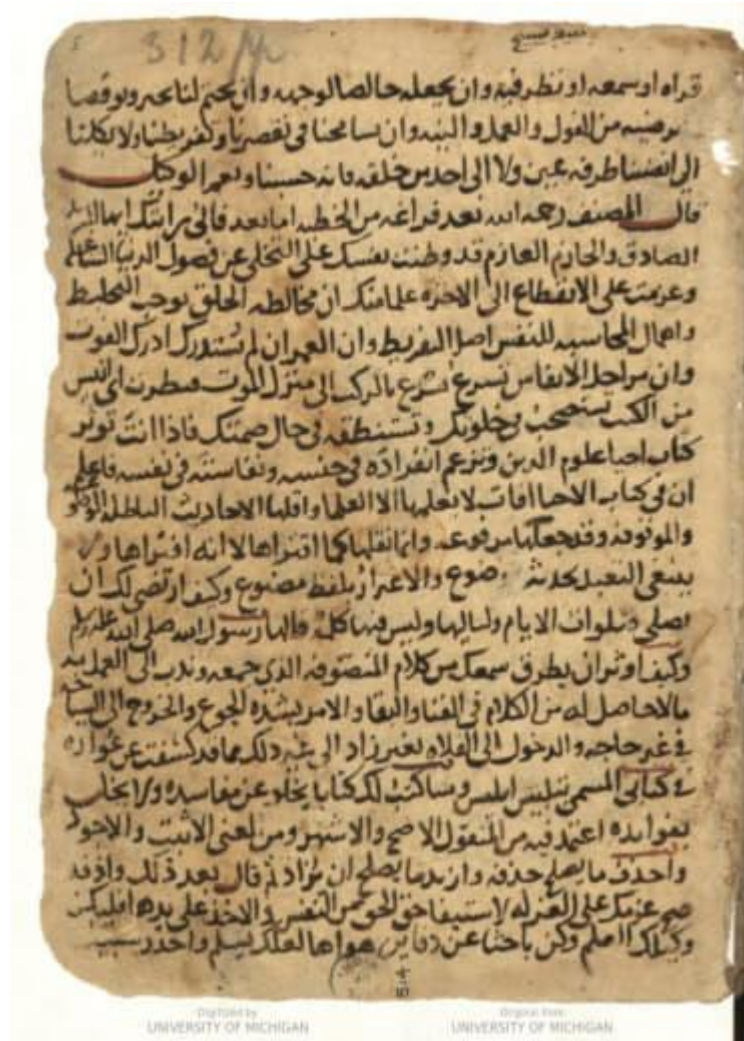 312
قراه او سمعه او نظر فيه وان يجعله خالصا لوجهه وان يختم لنا بخير ويوفقنا
يرضيه من القول والعمل والنيه وان يسامحنا في تقصيرنا وتفريطنا ولا يكلنا
الى انفسنا طرفه عين ولا الى احد من خلقه فانه حسبنا ونعم الوكيل
قال المصنف رحمه الله بعد فراغه من الخطبه اما بعد فاني رايتك ايها
الصادق والحازم العازم قد وطنت نفسك على التخلي عن فضول الدنيا الشاغله
وعزمت على الانقطاع الى الاخره علما منك ان مخالطه الخلق توجب التخليط
واهمال المحاسبه للنفس اصل التفريط وان العمر ان لم يستدرك ادركه الفوت
وان مراحل الانفاس تسرع بالركب الى منزل الموت فنظرت اي انيس
من الكتب تستصحب في خلوتك وتستنطقه في حال صمتك فاذا انت توثر
كتاب احيا علوم الدين وتزعم انفراده في جنسه ونفاسته في نفسه فاعلم
ان في كتاب الاحيا افات لا يعلمها الا العلما واقلها الاحاديث الباطله
والموقوفه وقد جعلها مرفوعه وانما نقلها كما اقتراها لا انه افتراها ولا
ينبغي التعبد بحديث موضوع والاغترار بلفظ مصنوع وكيف ارتضي لك ان
تصلي صلوات الايام والليالي وليس فيها كلمه قالها رسول الله صلى الله عليه وسلم
وكيف اوثر ان يطرق سمعك من كلام المتصوفه الذي جمعه وندب الى العمل به
مالا حاصل له من الكلام في الفنا والبقا والامر بشده الجوع والخروج الى السياحه
في غير حاجه والدخول الى الفلاه بغير زاد الى غير ذلك مما قد كشفت عن عواره
في كتابي المسمى بتلبيس ابليس وساكتب لك كتابا يخلو عن مفاسده ولا يخل
بفوايده اعتمد فيه من المنقول الاصح والاشهر ومن المعنى الاثبت والاجود
واحذف ما يصلح حذفه وازيد ما يصلح ان يزاد ثم قال بعد ذلك واذ قد
صح عزمك على العزله لاستيفا حق الحق من النفس والاخذ على يدها فليكن
وكيلك العلم وكن باحثا عن دفاين هواها لعلك تسلم واحذر سبيل
Digitized by
UNIVERSITY OF MICHIGAN
Original from
UNIVERSITY OF MICHIGAN